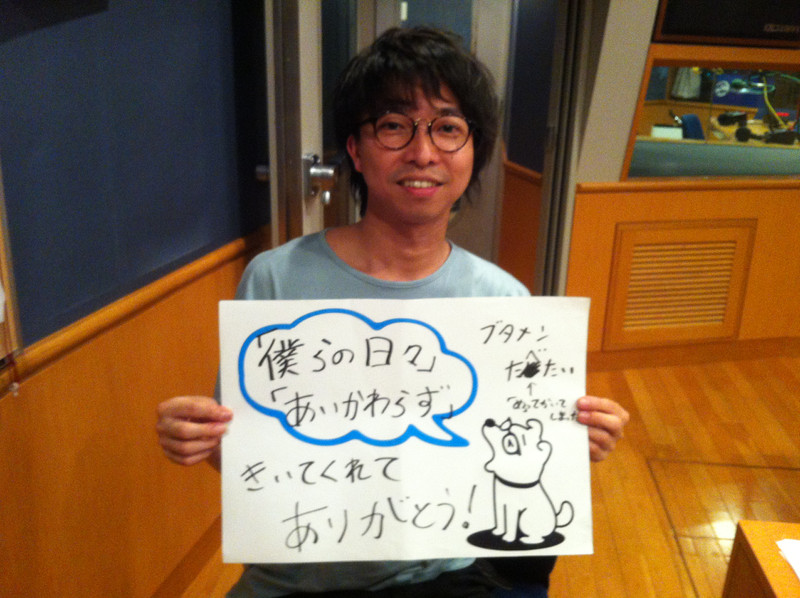 「僕らの日々」
「あいかわらず」
きいてくれて
ありがとう!
ブタメン
たべたい
↑
「め」ってかいて
しまった